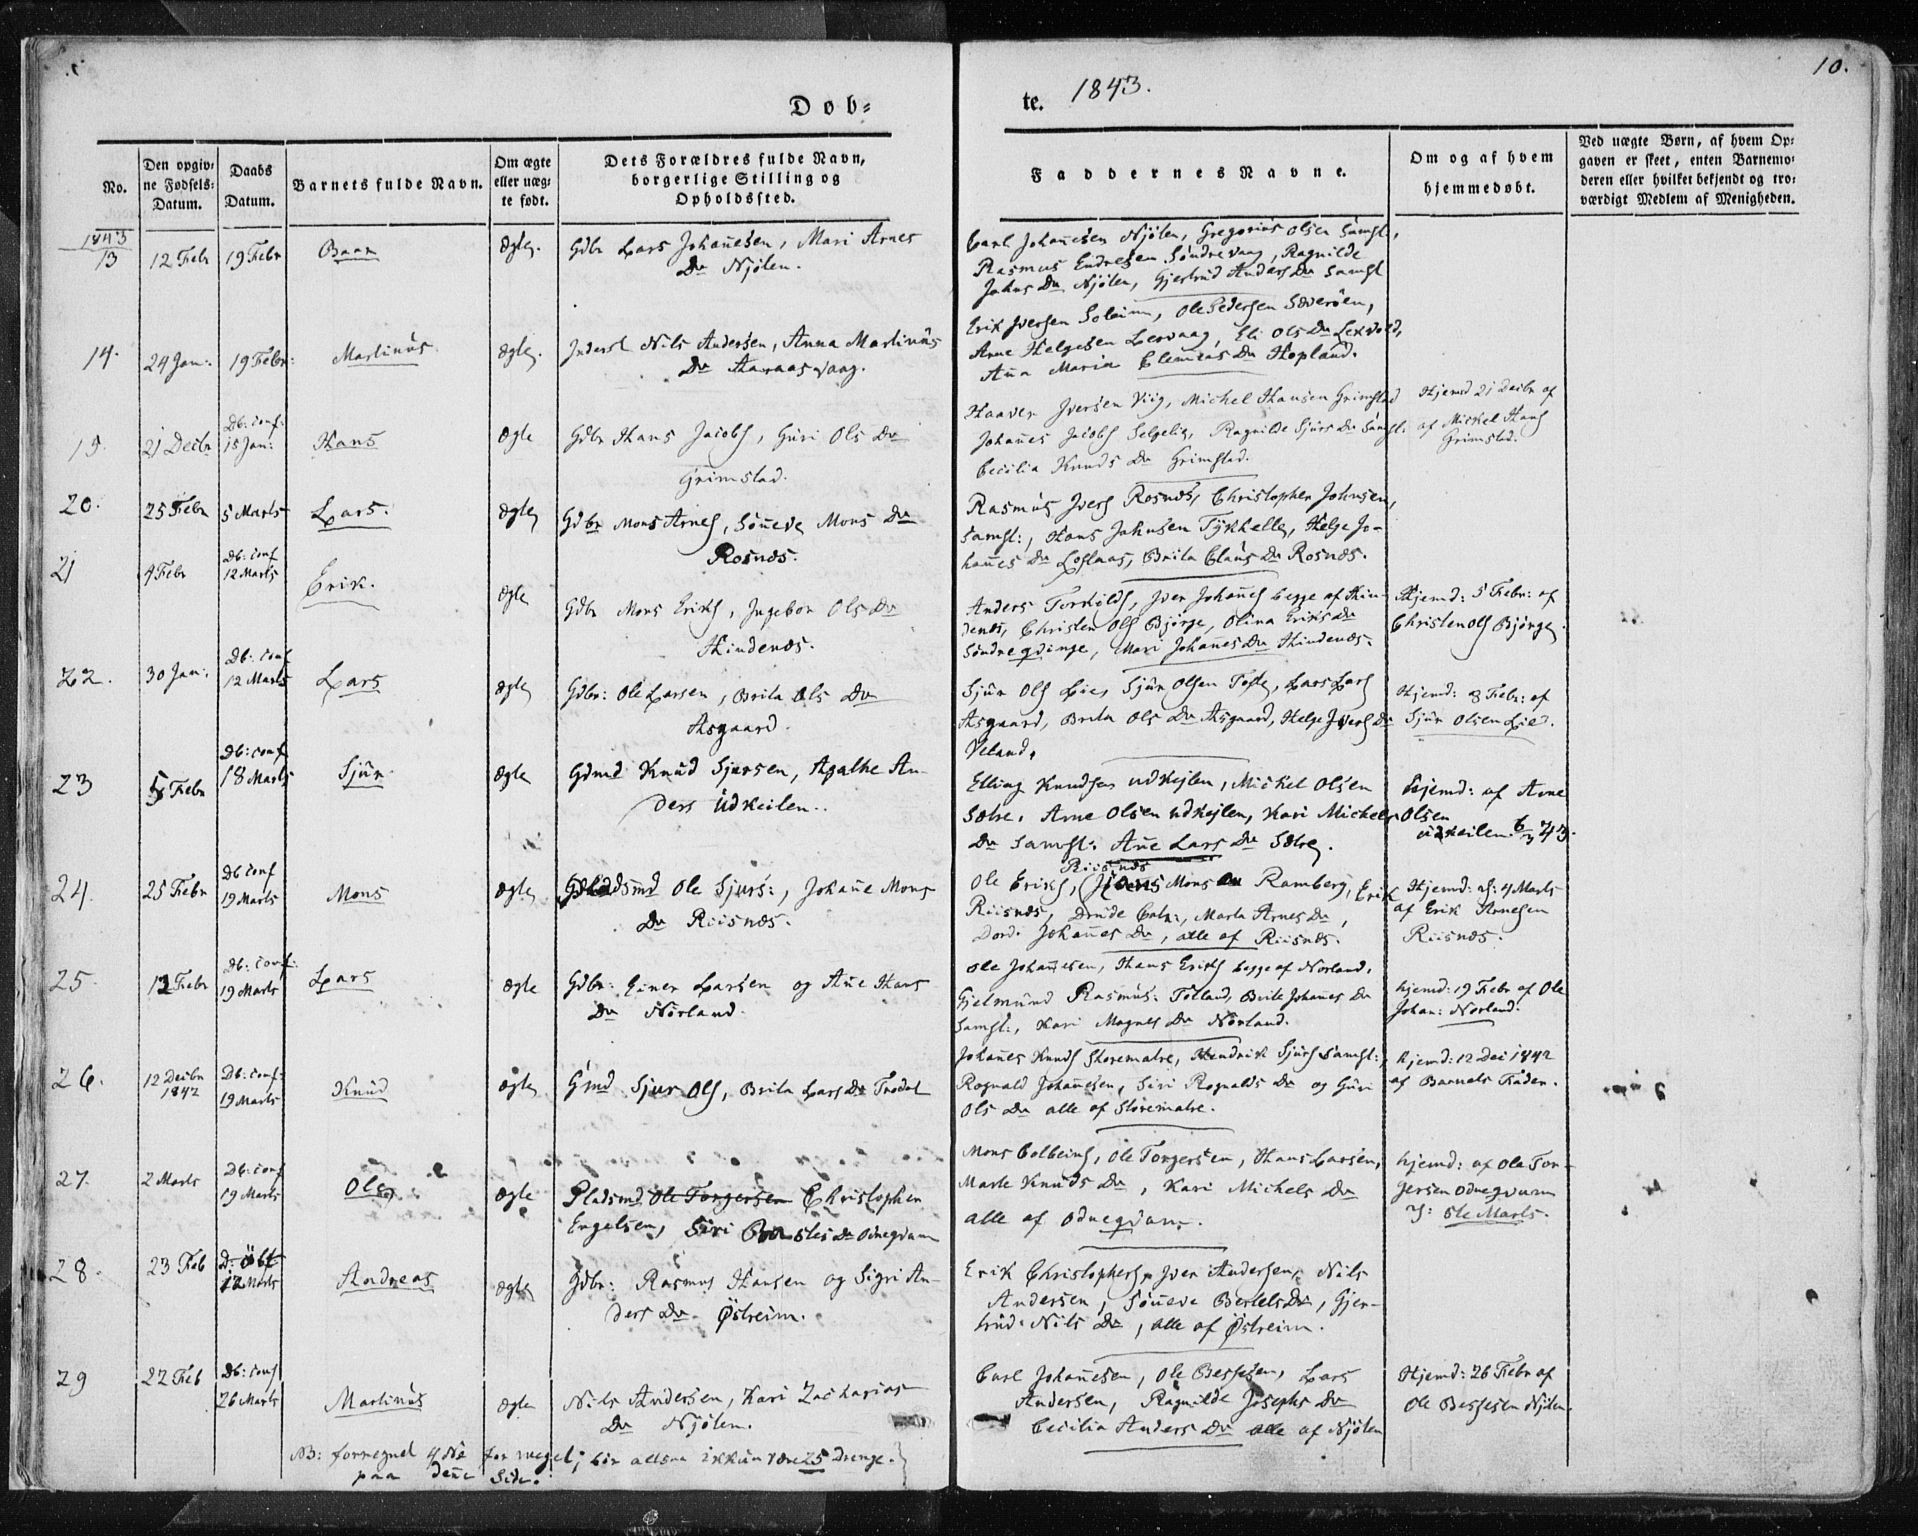 10.
Døb=
te. 1843.
No.
Den opgiv=
ne Fødsels=
Datum.
Daabs
Datum.
Barnets fulde Navn.
Om ægte
eller uæg=
te født.
Dets Forældres fulde Navn,
borgerlige Stilling og
Opholdssted.
Faddernes Navne.
Om og af hvem
hjemmedøbt.
Ved uægte Børn, af hvem Op=
gaven er skeet, enten Barnemo=
deren eller hvilket bekjendt og tro=
værdigt Medlem af Menigheden.
1843
13
12 Febr
19 Febr
Baar
Ægte.
Gdbr Lars Johannesen, Mari Arnes
Dr Njølen.
Carl Johannesen Njølen, Gregorius Olsen Samst,
Rasmus Endresen Søndre Vaag, Ragnilde
Johns Dr Njølen, Gjertrud Anders Dr Samst
14.
24 Jan:
19 Febr:
Martinus
Ægte.
Inderst Nils Andersen, Anna Martinus
Dr Haraasvaag.
Erik Iversen Soleim, Ole Pedersen Sæverøen,
Arne Helgesen Lervaag, Eli Ols Dr Lexvold,
Anna Maria Clemens Dr Hopland.
19.
21 Decbr
Db: conf:
15 Jan:
Hans
Ægte
Gdbr Hans Jacobs, Guri Ols Dr
Grimstad.
Haaver Iversen Viig, Michel Hansen Grimstad
Johannes Jacobs Selgelig, Ragnilde Sjurs Dr Samst:
Cecilia Knuds Dr Grimstad.
Hjemd 21 Decbr af
af Michel Hans
Grimstad.
20.
25 Febr
5 Marts
Lars.
Ægte
Gdbr Mons Arnes, Sønneve Mons Dr
Rosnæs.
Rasmus Ivers Rosnæs, Christopher Johnsen,
Samst:, Hans Johnsen Tykkelle, Helge Jo-
hannes Dr Loflaas, Brita Claus Dr Rosnæs.
21
4 Febr
Db: conf
12 Marts
Erik.
Ægte
Gdbr Mons Eriks, Ingebor Ols Dr
Hindenæs.
Anders Torkilds, Iver Johannes begge af Hin-
denæs, Christen Ols Bjørge, Olina Eriks Dr
Søndre Qvinge, Mari Johannes Dr Hindenæs.
Hjemd: 5 Febr: af
Christen Ols Bjørge.
22.
30 Jan:
Db: conf
12 Marts
Lars
Ægte
Gdbr: Ole Larsen, Brita Ols Dr
Hsgaard.
Sjur Ols Lie, Sjur Olsen Tofte, Lars Lars
Hsgaard, Brita Ols Dr Hsgaard, Helge Ivers Dr
Veland.
Hjemd: 8 Febr: af
Sjur Olsen Lie.
23
5 Febr
Db: conf
18 Marts
Sjur.
Ægte
Gdmd Knud Sjursen, Agathe An-
ders Udkeilen.
Elling Knudsen Udkejlen, Michel Olsen
Sætre, Arne Olsen Udkejlen, Kari Michels
Dr Samst: Anne Lars Dr Sætre.
Hjemd: af Arne
Olsen
Udkeilen 6/3 43.
24.
25 Febr
Db conf
19 Marts
Mons
Ægte
Pladsmd Ole Sjurs:, Johanne Mons
Dr Riisnæs.
Riisnæs
Ole Eriks, Mons Ramberg, Erik
Riisnæs, Drude Catr:, Marta Arnes Dr,
Dordi Johannes Dr, alle af Riisnæs.
Hjemd: d: 4 Marts
af Erik Arnesen
Riisnæs.
25.
12 Febr
Db: conf:
19 Marts
Lars
Ægte
Gdbr: Einer Larsen og Anne Hans
Dr Nørland.
Ole Johannesen, Hans Eriks begge af Norland.
Gjelmund Rasmus: Totland, Brite Johannes Dr
Samst:, Kari Magnes Dr Nørland.
hjemd: 19 Febr af Ole
Johan: Norland.
26.
12 Decbr
1842
Db: conf:
19 Marts
Knud
Ægte
Gmd Sjur Ols, Brita Lars Dr
Johannes Knuds Storematre, Hendrik Sjurs Samst:,
Rognald Johannesen, Siri Rognalds Dr og Guri
Ols Dr alle af Storematre.
hjemd: 12 Dec 1842
af Barnets Fader.
27.
2 Marts
Db: conf
19 Marts
Ole
Ægte
Pladsmd Ole Torgersen Christopher
Engelsen, Siri Dr Odneqvam
Mons Colbeins, Ole Torgersen, Hans Larsen,
Marte Knuds Dr, Kari Michels Dr
alle af Odneqvam.
hjemd: af Ole Tor-
gersen Odneqvam
d: 5te Marts.
28.
23 Feb
12 Marts
Andreas
Ægte
Gdbr: Rasmus Hansen og Sigri An-
ders Dr Østreim.
Erik Christophers, Iver Andersen, Nils
Andersen, Sønneve Bertels Dr, Gjer-
trud Nils Dr, alle af Østreim.
29
22 Feb
Db: conf
26 Marts
Martinus
Ægte
Nils Andersen, Kari Zacharias
Dr Njølen.
Carl Johannesen, Ole Bessesen, Lars
Andersen, Ragnilde Josephs Dr
Cecilia Anders Dr alle af Njølen
Hjemd: 26 Febr af
Ole Bessesen Njølen.
NB: formegnet 4 No for meget; bør altsaa ikkun være 25 Drenge.
paa denne Side.